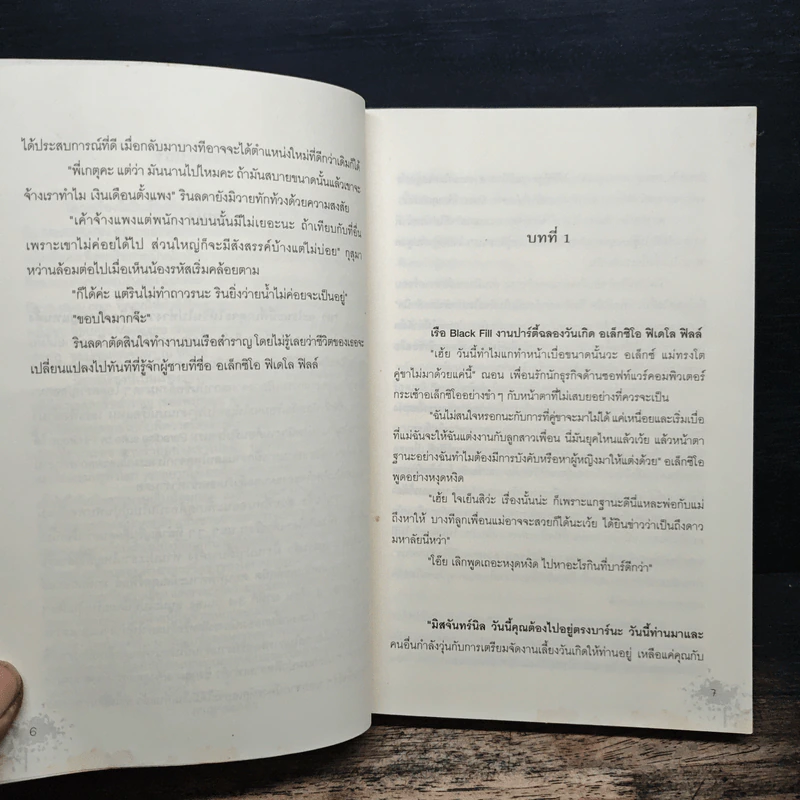 ได้ประสบการณ์ที่ดี เมื่อกลับมาบางทีอาจจะได้ตำแหน่งใหม่ที่ดีกว่าเดิมก็ได้
"พี่เกตุคะ แต่ว่า มันนานไปไหมคะ ถ้ามันสบายขนาดนั้นแล้วเขาจะ
จ้างเราทำไม เงินเดือนตั้งแพง" รินลดายังมิวายทักท้วงด้วยความสงสัย
"เค้าจ้างแพงแต่พนักงานบนนั้นมีไม่เยอะนะ ถ้าเทียบกับที่อื่น
เพราะเขาไม่ค่อยได้ไป ส่วนใหญ่ก็จะมีสังสรรค์บ้างแต่ไม่บ่อย" กุสุมา
หว่านล้อมต่อไปเมื่อเห็นน้องรหัสเริ่มคล้อยตาม
"ก็ได้ค่ะ แต่รินไม่ทำถาวรนะ รินยิ่งว่ายน้ำไม่ค่อยจะเป็นอยู่"
"ขอบใจมากจ๊ะ"
รินลดาตัดสินใจทำงานบนเรือสำราญ โดยไม่รู้เลยว่าชีวิตของเธอจะ
เปลี่ยนแปลงไปทันทีที่รู้จักผู้ชายที่ชื่อ อเล็กซิโอ ฟิเดโล ฟิลล์
6
บทที่ 1
เรือ Black Fill งานปาร์ตี้ฉลองวันเกิด อเล็กซิโอ ฟิเดโล ฟิลล์
"เฮ้ย วันนี้ทำไมแกทำหน้าเบื่อขนาดนั้นวะ อเล็กซ์ แม่ทรงโต
คู่ขาไม่มาด้วยแค่นี้" ณอน เพื่อนรักนักธุรกิจด้านซอฟท์แวร์คอมพิวเตอร์
กระเซ้าอเล็กซิโออย่างขำๆ กับหน้าตาที่ไม่เสบยอย่างที่ควรจะเป็น
"ฉันไม่สนใจหรอกนะกับการที่คู่ขาจะมาไม่ได้ แค่เหนื่อยและเริ่มเบื่อ
ที่แม่ฉันจะให้ฉันแต่งงานกับลูกสาวเพื่อน นี่มันยุคไหนแล้วเว้ย แล้วหน้าตา
ฐานะอย่างฉันทำไมต้องมีการบังคับหรือหาผู้หญิงมาให้แต่งด้วย" อเล็กซิโอ
พูดอย่างหงุดหงิด
"เฮ้ย ใจเย็นสิว่ะ เรื่องนั้นน่ะ ก็เพราะแกฐานะดีนี่แหละพ่อกับแม่
ถึงหาให้ บางทีลูกเพื่อนแม่อาจจะสวยก็ได้นะเว้ย ได้ยินข่าวว่าเป็นถึงดาว
มหาลัยนี่หว่า"
"โอ๊ย เลิกพูดเถอะหงุดหงิด ไปหาอะไรกินที่บาร์ดีกว่า"
"มิสจันทร์นิล วันนี้คุณต้องไปอยู่ตรงบาร์นะ วันนี้ท่านมาและ
คนอื่นกำลังวุ่นกับการเตรียมจัดงานเลี้ยงวันเกิดให้ท่านอยู่ เหลือแค่คุณกับ
7